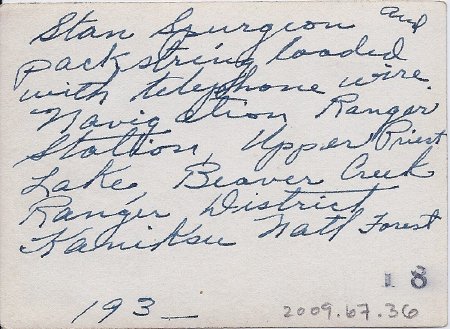 Stan Spurgeon and
packstring loaded
with telephone wire.
Navigation Ranger
Station, Upper Priest
Lake, Beaver Creek
Ranger District
Kaniksu Natl Forest
18
193_
2009.67.36